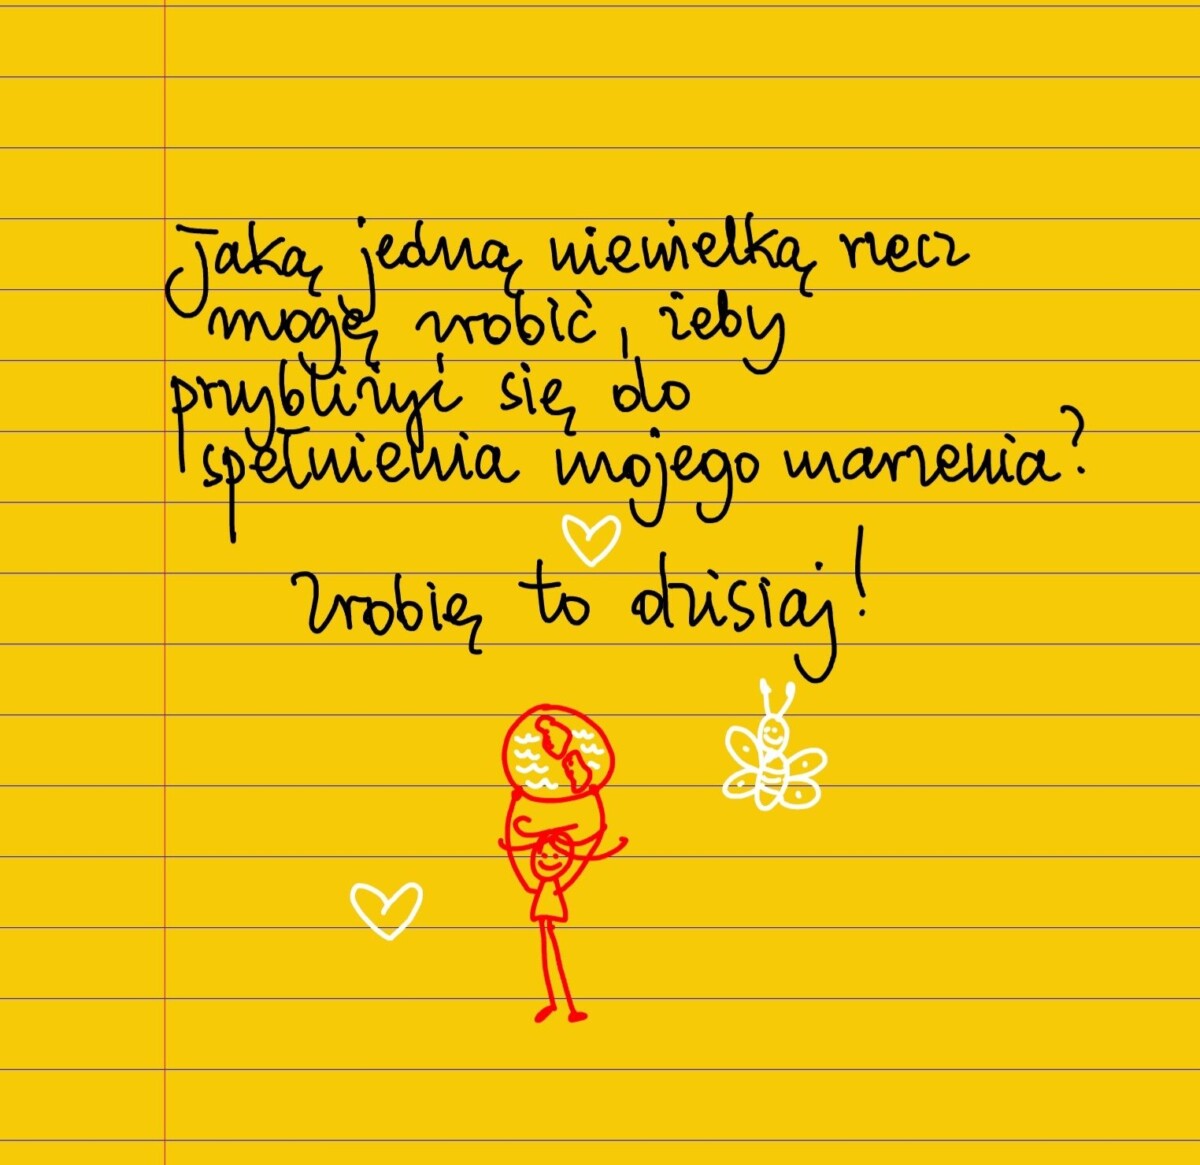 Jaką jedną niewielką rzecz
mogę zrobić, żeby
przybliżyć się do
spełnienia mojego marzenia?
Zrobię to dzisiaj!